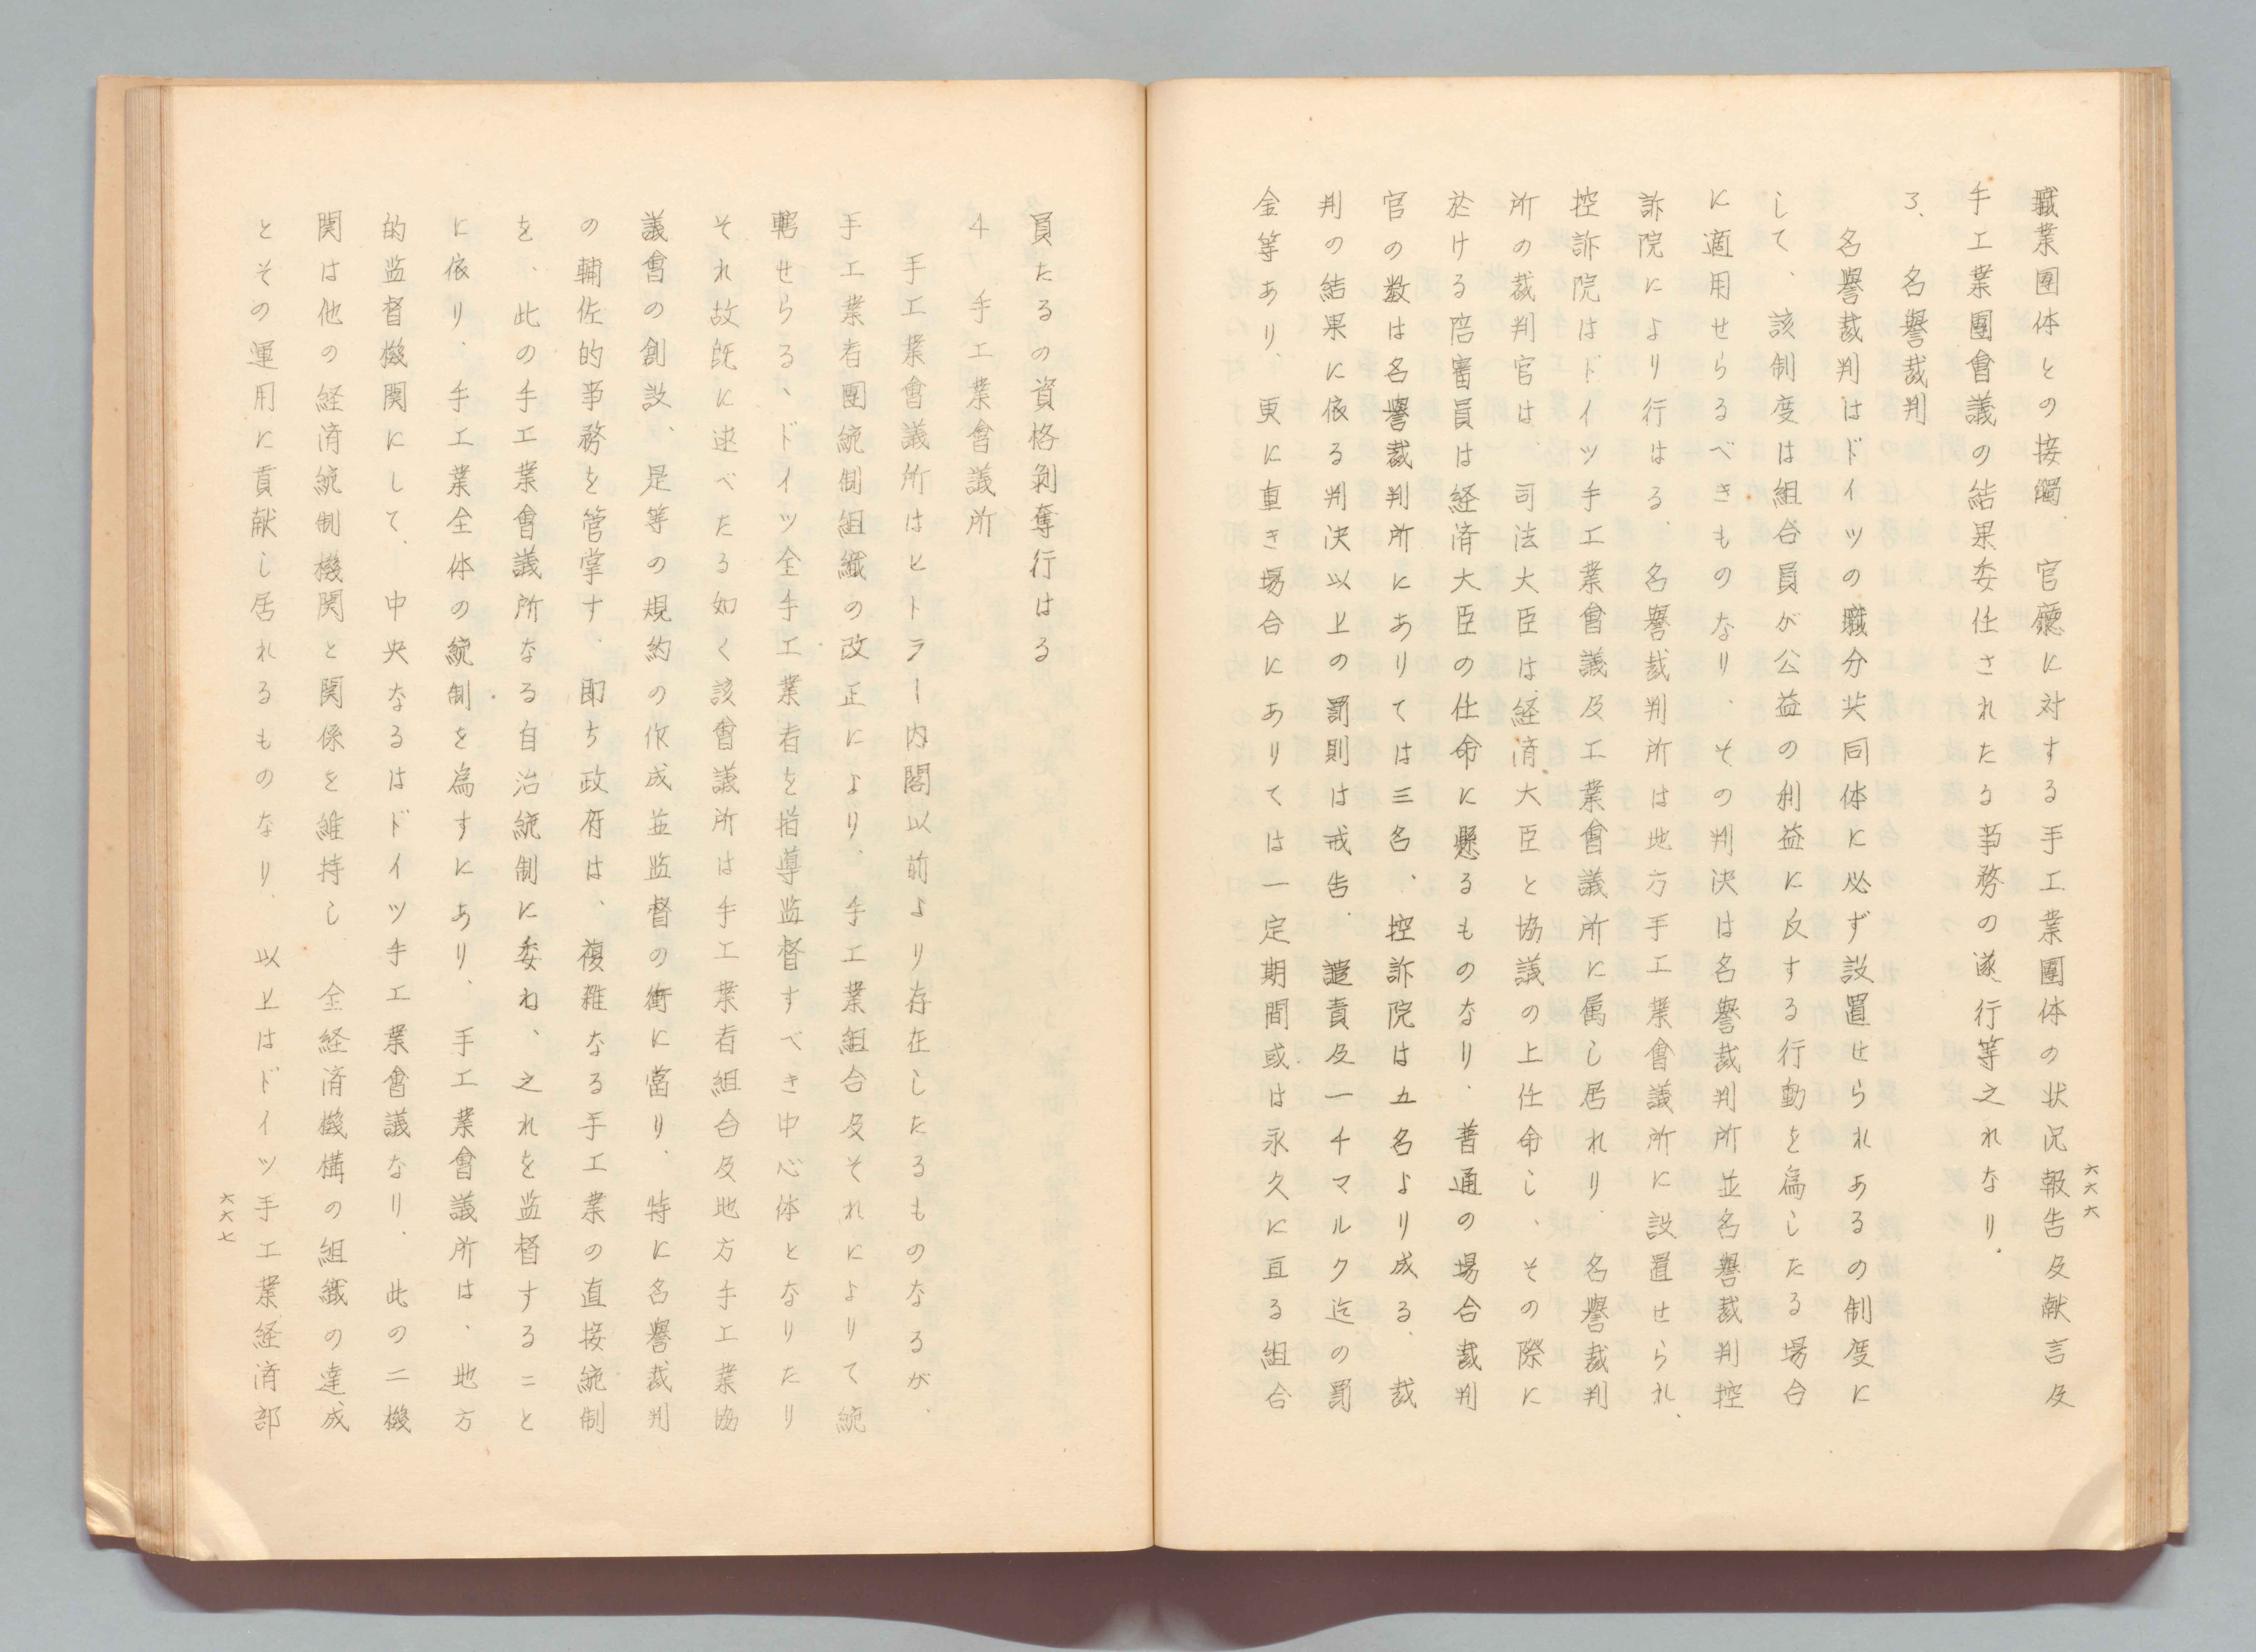 職業團体との接觸、官廳に対する手工業團体の状況報告及献言及
手工業團會議の結果委任されたる事務の遂行等之れなり、
3、名譽裁判
名譽裁判はドイツの職分共同体に必ず設置せられあるの制度に
して、該制度は組合員が公益の利益に反する行動を為したる場合
に適用せらるべきものなり、その判決は名譽裁判所並名譽裁判控
訴院により行はる、名譽裁判所は地方手工業會議所に設置せられ、
控訴院はドイツ手工業會議及工業會議所に属し居れり、名譽裁判
所の裁判官は、司法大臣は経済大臣と協議の上任命し、その際に
於ける陪審員は経済大臣の任命に懸るものなり、普通の場合裁判
官の数は名譽裁判所にありては三名、控訴院は五名より成る、裁
判の結果に依る判決以上の罰則は戒告、譴責及一千マルク迄の罰
金等あり、更に重き場合にありては一定期間或は永久に亘る組合
六六六
員たるの資格剝奪行はる
4 手工業會議所
手工業會議所はヒトラー内閣以前より存在したるものなるが、
手工業者團統制組織の改正により、手工業組合及それによりて統
轄せらる、ドイツ全手工業者を指導監督すべき中心体となりたり
それ故既に述べたる如く該會議所は手工業者組合及地方手工業協
議會の創設、是等の規約の作成並監督の衝に當り、特に名譽裁判
の輔佐的事務を管掌す、即ち政府は、複雑なる手工業の直接統制
を、此の手工業會議所なる自治統制に委ね、之れを監督すること
に依り、手工業全体の統制を為すにあり、手工業會議所は、地方
的監督機関にして、中央なるはドイツ手工業會議なり、此の二機
関は他の経済統制機関と関係を維持し 全経済機構の組織の達成
とその運用に貢献し居れるものなり、以上はドイツ手工業経済部
六六七